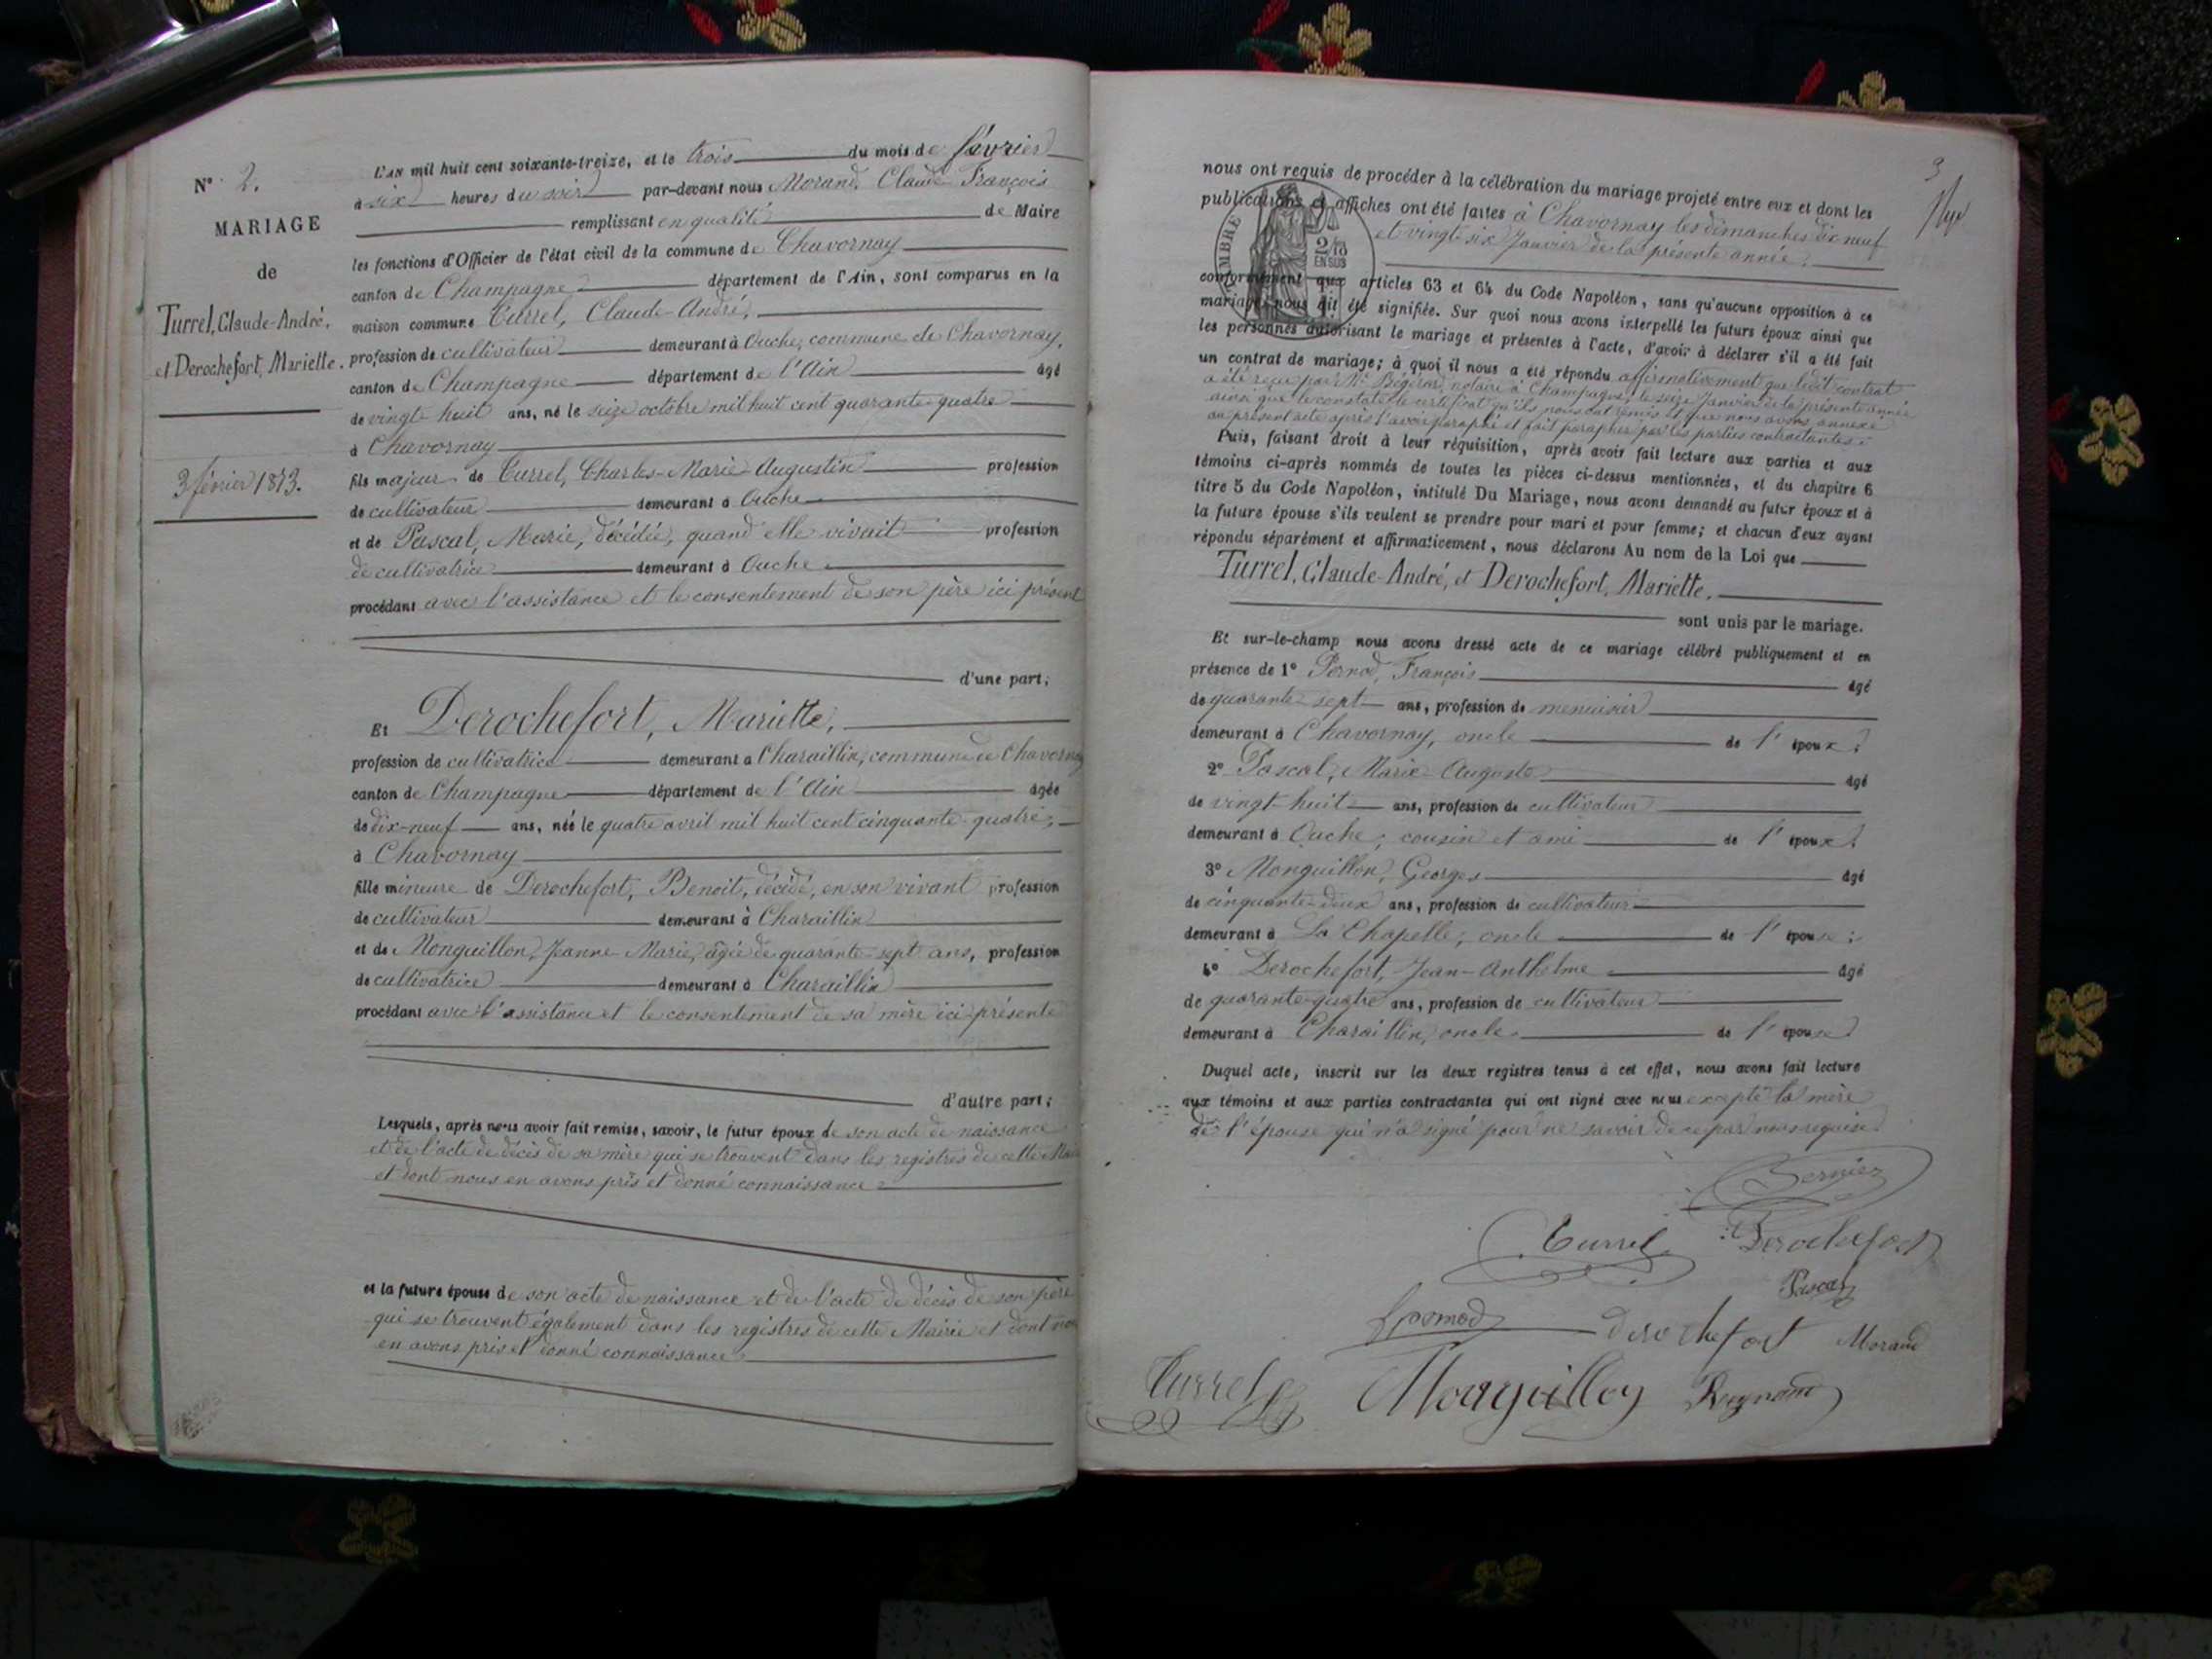 N° 2.
MARIAGE
de
Turrel, Claude-André,
et Derochefort, Mariette.
3 février 1873.
L'AN mil huit cent soixante-treize, et le trois du mois de février
à six heures du soir par-devant nous Morand, Claude François
remplissant en qualité de Maire
les fonctions d'Officier de l'état civil de la commune de Chavornay
canton de Champagne département de l'Ain, sont comparus en la
maison commune Turrel, Claude-André,
profession de cultivateur demeurant à Ouche, commune de Chavornay,
canton de Champagne département de l'Ain âgé
de vingt-huit ans, né le seize octobre mil huit cent quarante-quatre
à Chavornay
fils majeur de Turrel, Charles-Marie-Augustin profession
de cultivateur demeurant à Ouche
et de Pascal, Marie, décédée, quand elle vivait profession
de cultivatrice demeurant à Ouche
procédant avec l'assistance et le consentement de son père ici présent
d'une part;
Et Derochefort, Mariette,
profession de cultivatrice demeurant à Charaillin, commune de Chavornay
canton de Champagne département de l'Ain âgée
de dix-neuf ans, née le quatre avril mil huit cent cinquante-quatre,
à Chavornay
fille mineure de Derochefort, Benoit, décédé, en son vivant profession
de cultivateur demeurant à Charaillin
et de Monguillon, Jeanne-Marie, âgée de quarante-sept ans, profession
de cultivatrice demeurant à Charaillin
procédant avec l'assistance et le consentement de sa mère ici présente
d'autre part;
Lesquels, après nous avoir fait remise, savoir, le futur époux de son acte de naissance
et de l'acte de décès de sa mère qui se trouvent dans les registres de cette Mairie
et dont nous en avons pris et donné connaissance
et la future épouse de son acte de naissance et de l'acte de décès de son père
qui se trouvent également dans les registres de cette Mairie et dont nous
en avons pris et donné connaissance
3
nous ont requis de procéder à la célébration du mariage projeté entre eux et dont les
publications et affiches ont été faites à Chavornay les dimanches dix-neuf
et vingt-six Janvier de la présente année.
TIMBRE
2/10
EN SUS
conformément aux articles 63 et 64 du Code Napoléon, sans qu'aucune opposition à ce
mariage nous ait été signifiée. Sur quoi nous avons interpellé les futurs époux ainsi que
les personnes autorisant le mariage et présentes à l'acte, d'avoir à déclarer s'il a été fait
un contrat de mariage; à quoi il nous a été répondu affirmativement que ledit contrat
a été reçu par Me notaire à Champagne, le seize Janvier de la présente année
ainsi que le constate le certificat qu'ils nous ont remis et que nous avons annexé
au présent acte après l'avoir paraphé et fait parapher par les parties contractantes.
Puis, faisant droit à leur réquisition, après avoir fait lecture aux parties et aux
témoins ci-après nommés de toutes les pièces ci-dessus mentionnées, et du chapitre 6
titre 5 du Code Napoléon, intitulé Du Mariage, nous avons demandé au futur époux et à
la future épouse s'ils veulent se prendre pour mari et pour femme; et chacun d'eux ayant
répondu séparément et affirmativement, nous déclarons Au nom de la Loi que
Turrel, Claude-André, et Derochefort, Mariette.
sont unis par le mariage.
Et sur-le-champ nous avons dressé acte de ce mariage célébré publiquement et en
présence de 1° Pernod, François âgé
de quarante-sept ans, profession de menuisier
demeurant à Chavornay, oncle de l'époux.
2° Pascal, Marie-Auguste âgé
de vingt-huit ans, profession de cultivateur
demeurant à Ouche, cousin et ami de l'époux.
3° Monguillon, Georges âgé
de cinquante-deux ans, profession de cultivateur
demeurant à La Chapelle, oncle de l'épouse;
4° Derochefort, Jean-Anthelme âgé
de quarante-quatre ans, profession de cultivateur
demeurant à Charaillin, oncle de l'épouse
Duquel acte, inscrit sur les deux registres tenus à cet effet, nous avons fait lecture
aux témoins et aux parties contractantes qui ont signé avec nous excepté la mère
de l'épouse qui n'a signé pour ne savoir de ce par nous requise.
Bernier
Turrel Derochefort
Pascal
Pernod derochefort Morand
Turrel Monguillon Reynaud